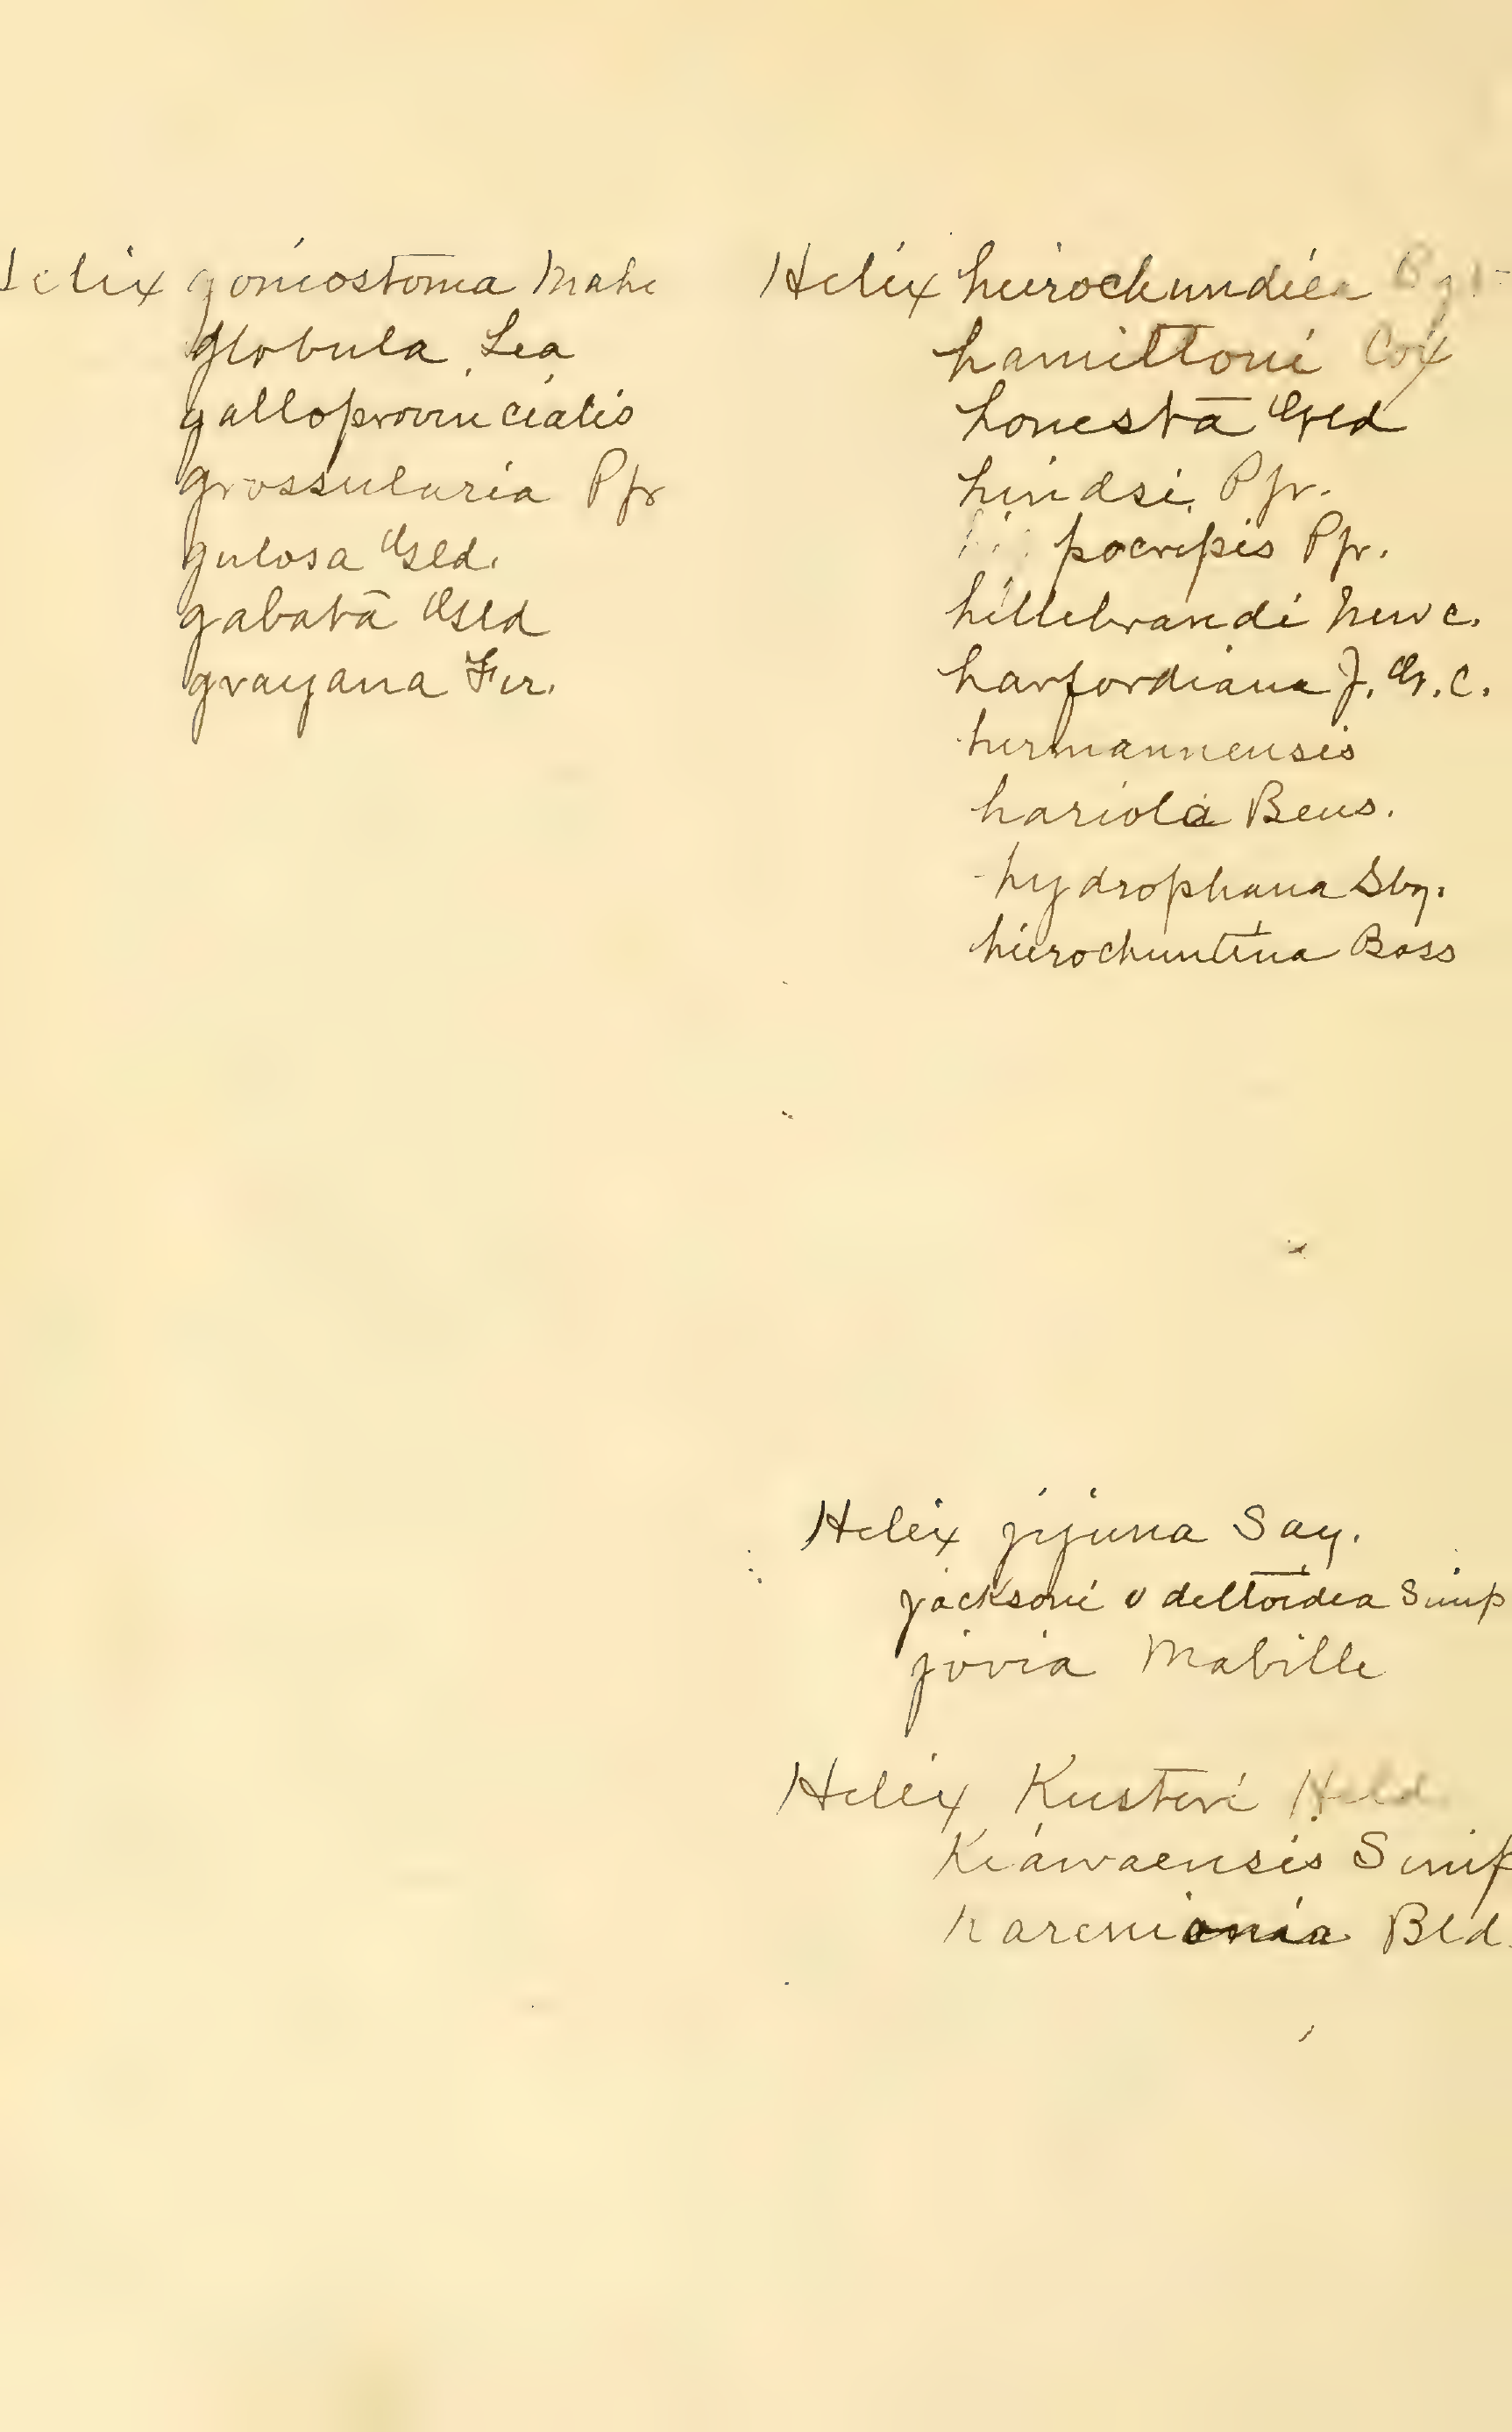 Helix goniostoma Mabi
globula Lea
galloprovincialis
grossularia Pfr
gulosa Gld.
gabata Gld
grayana Fer.
Helix heirochundica Bgt
hamiltoni Cox
honesta Gld
hindsi Pfr.
pocrepis Pfr.
hillebrandi Newc.
harfordiana J. G. C.
hermannensis
hariola Bens.
hydrophana Sby.
hierochuntina Boss
Helix jejuna Say.
jacksoni v deltoidea Simp
jovia Mabille
Helix Kusteri Held
Kiawaensis Simp
Bld.